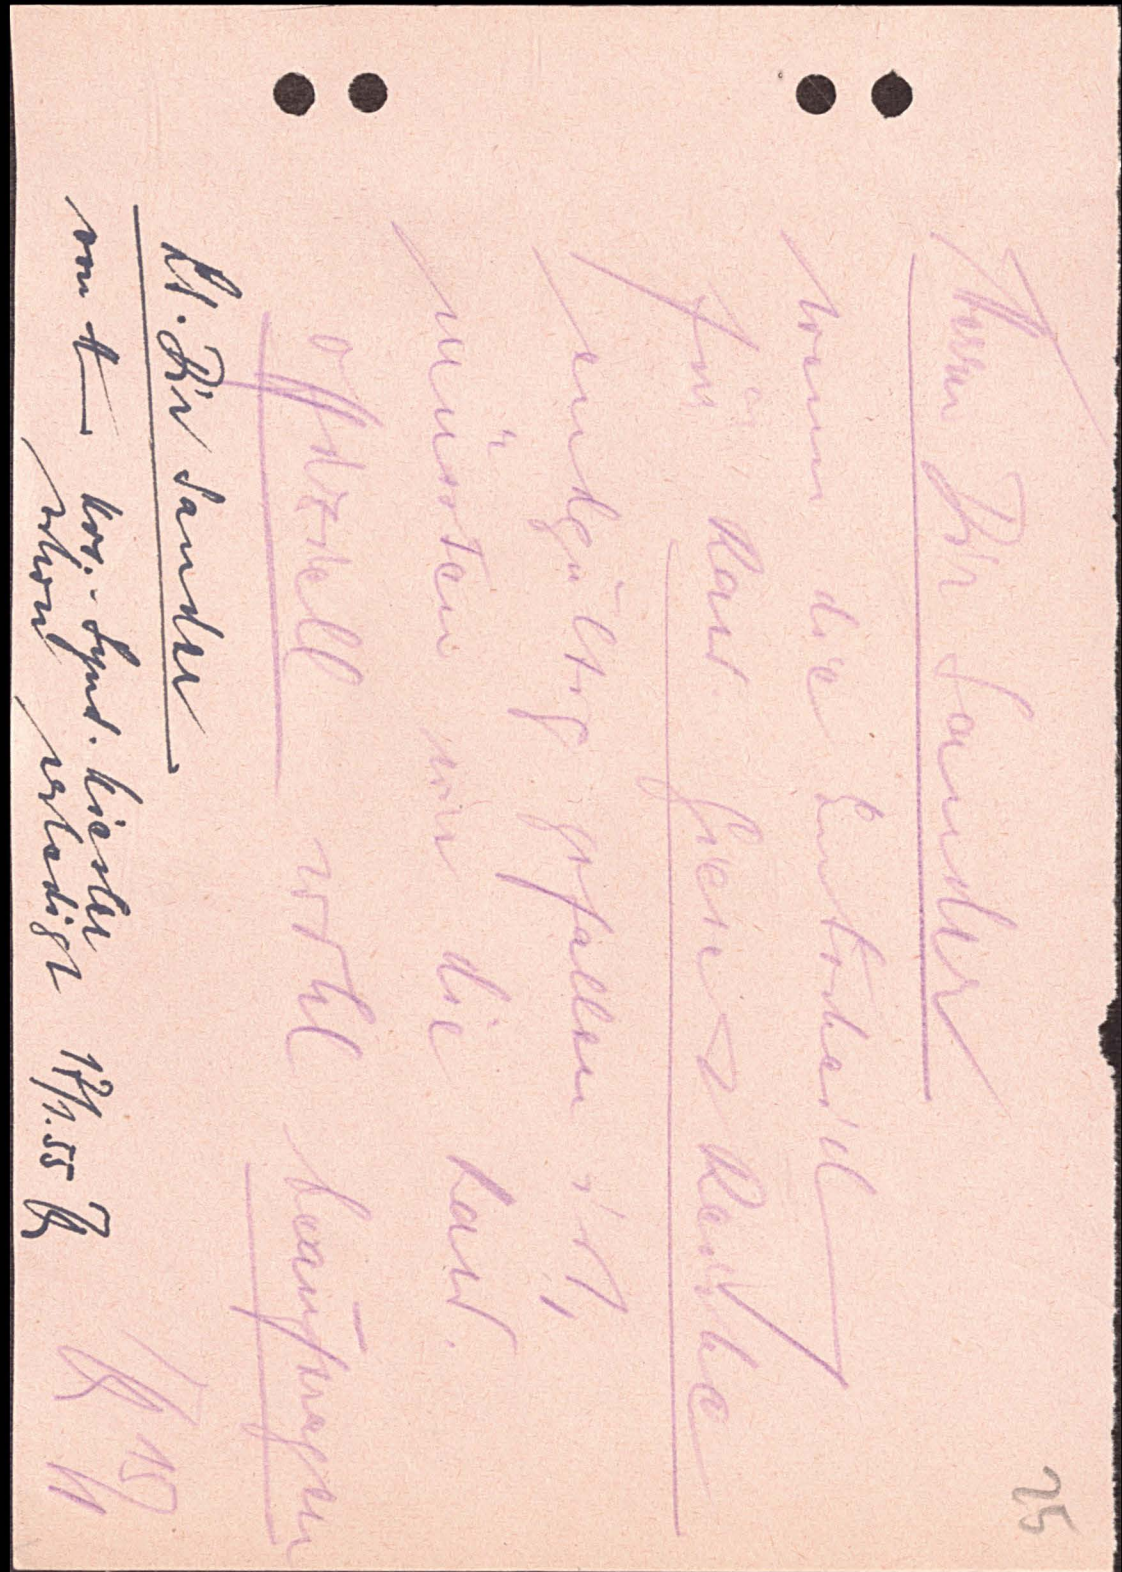 Herrn Dir Sander
Wenn die Entscheid
für Kand. Giese & Reische
endgültig gefallen ist,
müssten wir die Kand.
offiziell wohl beauftragen
15/1
Lt. Dir Sander
von Kons.-Synd.
schon erledigt 17/1.55
25